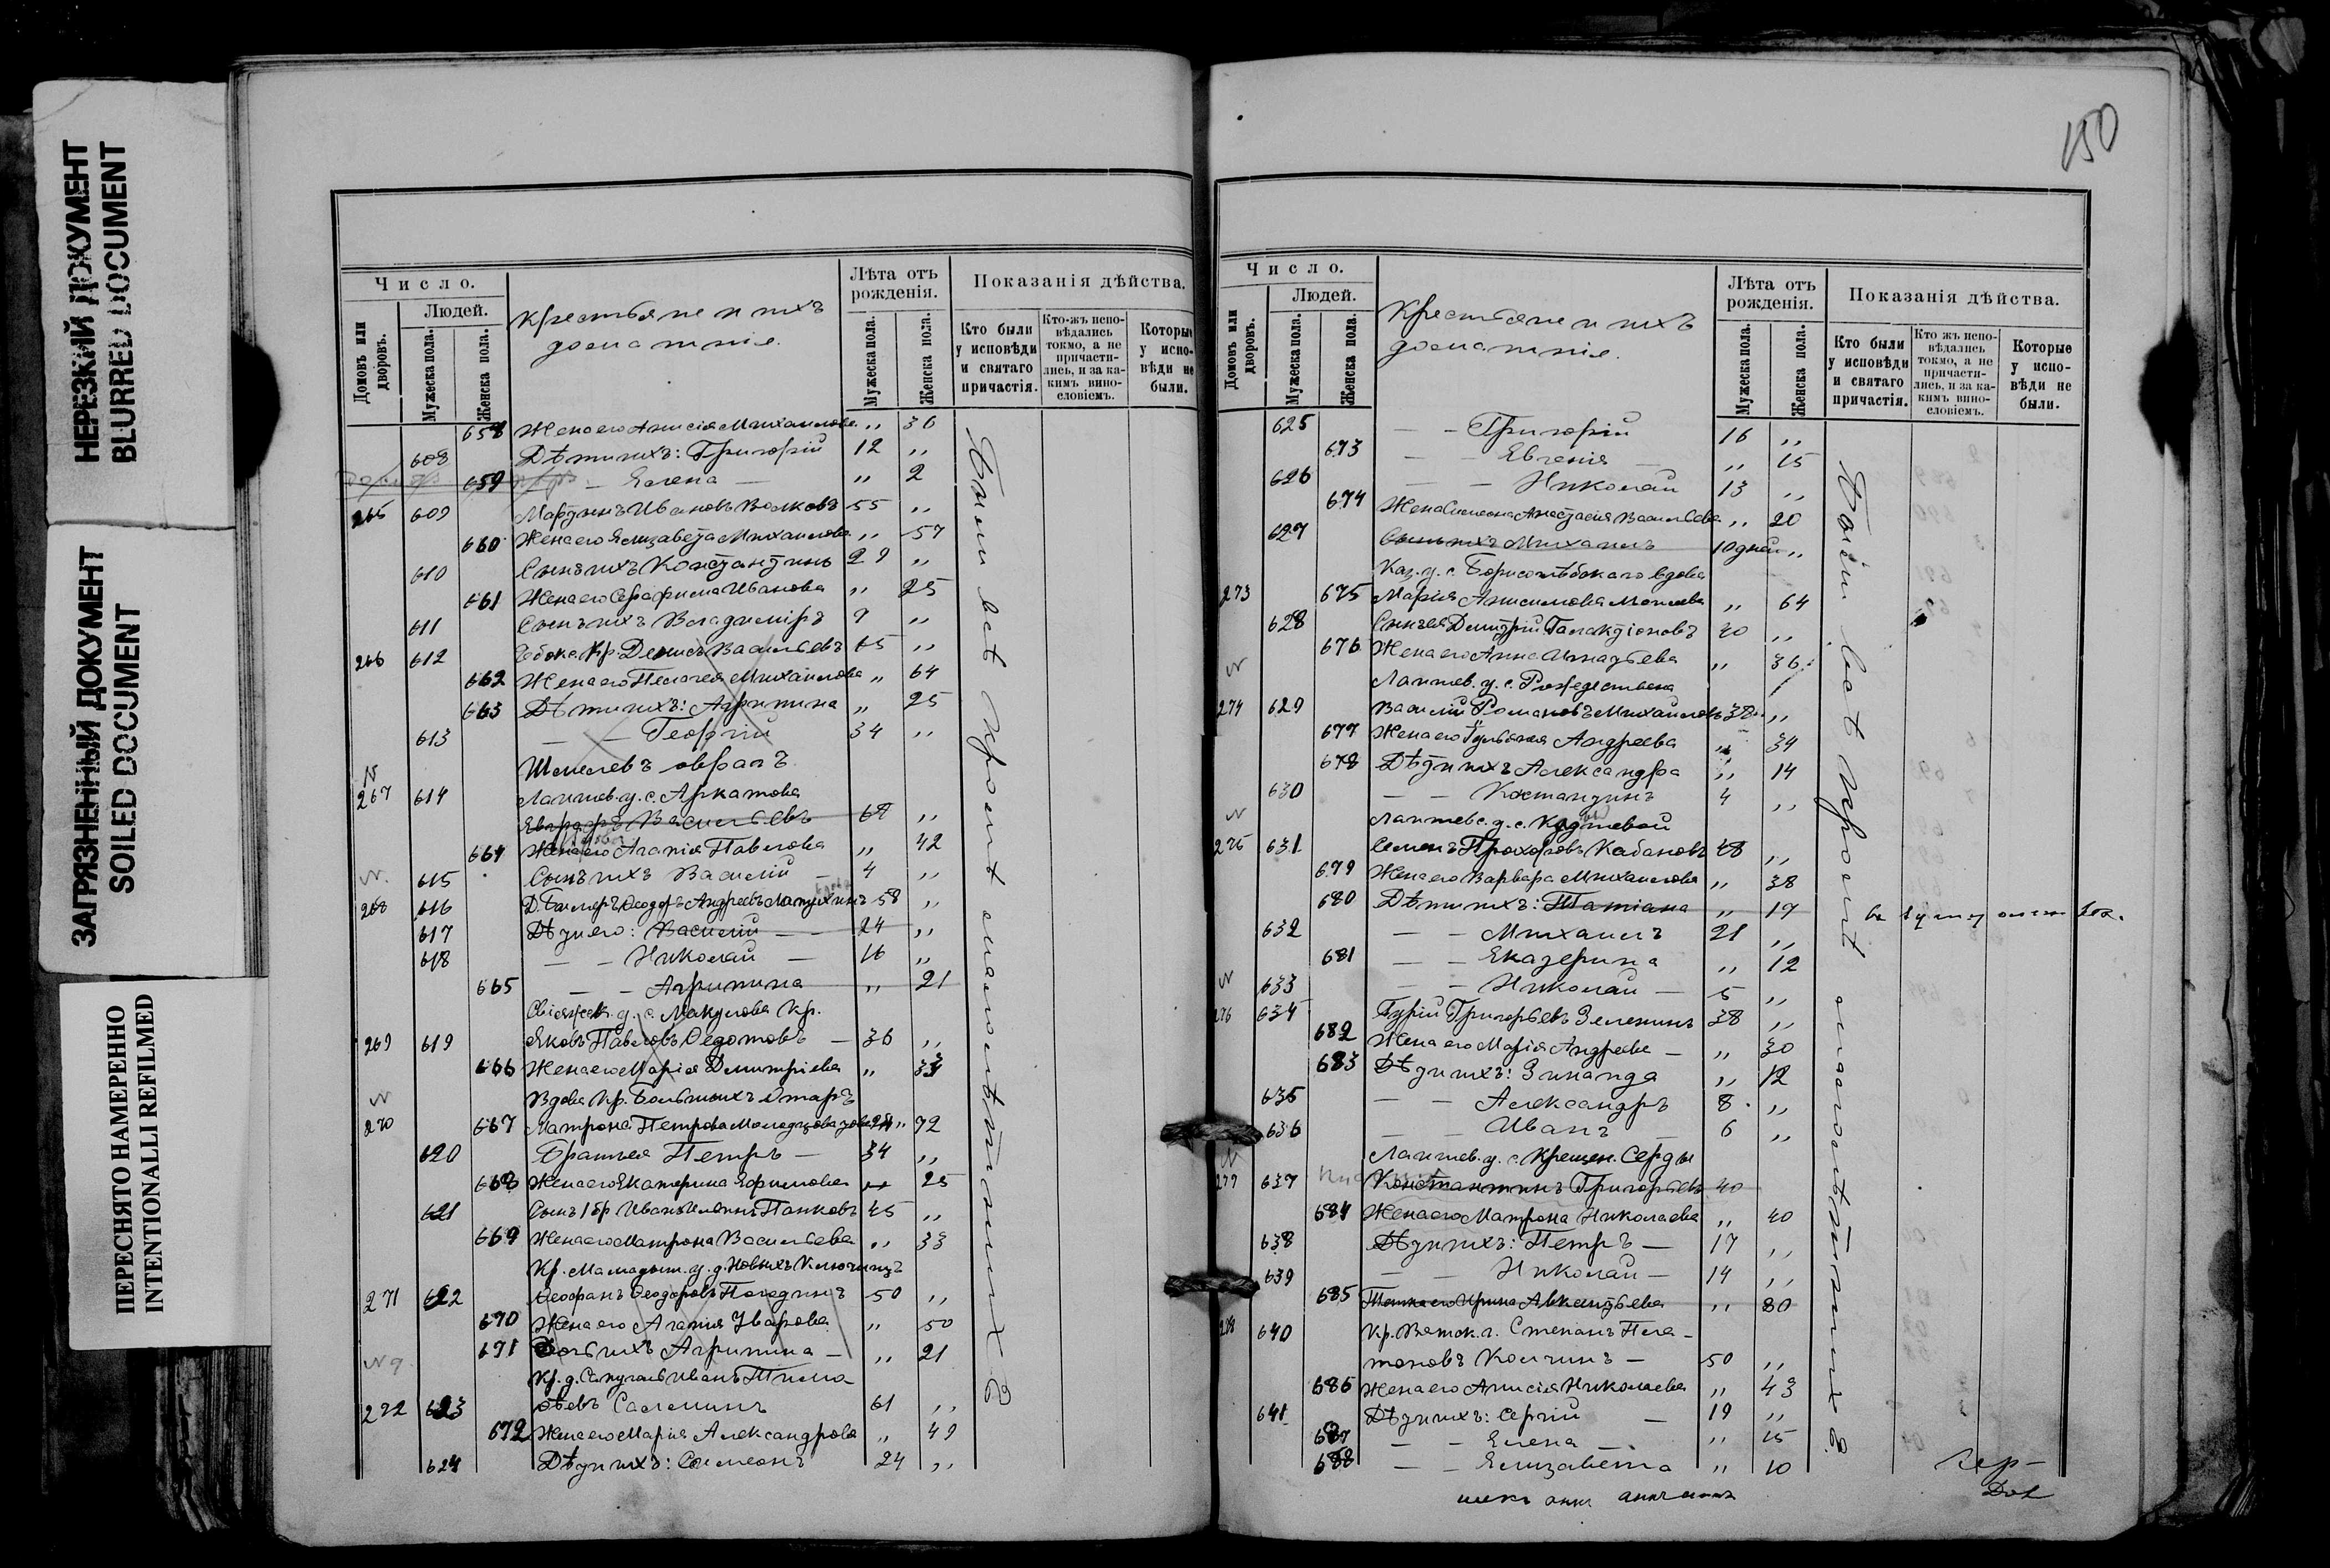 НЕРЕЗКИЙ ДОКУМЕНТ
BLURRED DOCUMENT
ЗАГРЯЗНЕННЫЙ ДОКУМЕНТ
SOILED DOCUMENT
ПЕРЕСНЯТО НАМЕРЕННО
INTENTIONALLI REFILMED
Число.
Домовъ или дворовъ.
Людей.
Мужеска пола.
Женска пола.
Крестьяне и ихъ
домашнія.
Лѣта отъ
рожденія.
Мужеска пола.
Женска пола.
Показанія дѣйства.
Кто были
у исповѣди
и святаго
причастія.
Кто-жъ испо-
вѣдались
токмо, а не
причасти-
лись, и за ка-
кимъ вино-
словіемъ.
Которые
у испо-
вѣди не
были.
658 Жена его Анисія Михаилова „ 36
608 Дѣти ихъ: Григорій 12 „
659 — Елена — „ 2
265 609 Мартинъ Ивановъ Волковъ 55 „
660 Жена его Елизавета Михаилова „ 57
610 Сынъ ихъ Константинъ 29 „
661 Жена его Серафима Иванова „ 25
611 Сынъ ихъ Владиміръ 9 „
266 612 Кр. Денисъ Васильевъ 65 „
662 Жена его Пелагея Михаилова „ 64
663 Дѣти ихъ: Агрипина „ 25
613 — — Георгій 34 „
N Шемелевъ оврагъ
267 614 Лаишев. у. с. Аркатова
Евграфъ Васильевъ 68 „
664 Жена его Агапія Павлова „ 42
N. 615 Сынъ ихъ Василій — 4 „
268 616 Ѳеодоръ Андреевъ Лапухинъ вдовъ 58 „
617 Дѣти его: Василій — — 24 „
618 — — Николай — 16 „
665 — — Агрипина „ 21
Свіяжск. у. с. Макулова кр.
269 619 Яковъ Павловъ Ѳедотовъ — 36 „
666 Жена его Марія Димитріева „ 33
N Вдова кр. Большихъ Отаръ
270 667 Матрона Петрова „ 92
620 Братъ ея Петръ — 34 „
668 Жена его Екатерина Ефимова „ 25
621 Сынъ 1 бр. Иванъ Панковъ 45 „
669 Жена его Матрона Васильева „ 33
Кр. Мамадыш. у. д. Новыхъ Ключищъ
271 622 Ѳеофанъ Ѳеодоровъ 50 „
670 Жена его Агапія Уварова „ 50
671 Дочь ихъ Агрипина — „ 21
N 9 Кр. д. Сапуголь Иванъ Тимо-
272 623 ѳеевъ Саломинъ 61 „
672 Жена его Марія Александрова „ 49
624 Дѣти ихъ: Симеонъ 24 „
Были всѣ кромѣ малолѣтнихъ
150
Число.
Домовъ или дворовъ.
Людей.
Мужеска пола.
Женска пола.
Крестьяне и ихъ
домашнія.
Лѣта отъ
рожденія.
Мужеска пола.
Женска пола.
Показанія дѣйства.
Кто были
у исповѣди
и святаго
причастія.
Кто жъ испо-
вѣдались
токмо, а не
причасти-
лись, и за ка-
кимъ вино-
словіемъ.
Которые
у испо-
вѣди не
были.
625 — — Григорій 16 „
673 — — Евгенія — „ 15
626 — — Николай 13 „
674 Жена Симеона Анастасія Васильева „ 20
627 Сынъ ихъ Михаилъ 10 дней „
Каз. у. с. Борисоглѣбскаго вдова
273 675 Марія Анисимова „ 64
628 Сынъ ея Димитрій Галактіоновъ 40 „
676 Жена его Анна Игнатьева „ 36
N Лаишев. у. с. Рождествена
274 629 Василій Романовъ Михаиловъ 38 „
677 Жена его Іуліанія Андреева „ 34
678 Дѣти ихъ Александра „ 14
630 — — Константинъ 4 „
N Лаишевс. у. с.
275 631 Семенъ Прохоровъ Кабановъ 48 „
679 Жена его Варвара Михаилова „ 38
680 Дѣти ихъ: Татіана „ 19
632 — — Михаилъ 21 „
681 — — Екатерина „ 12
N 633 — — Николай — 5 „
276 634 Гурій Григорьевъ Зеленинъ 38 „
682 Жена его Марія Андреева — „ 30
683 Дѣти ихъ: Зинаида „ 12
635 — — Александръ 8 „
636 — — Иванъ — 6 „
N Лаишев. у. с. Крещен. Серды
277 637 Константинъ Григорьевъ 40
684 Жена его Матрона Николаева „ 40
638 Дѣти ихъ: Петръ — 17 „
639 — — Николай — 14 „
685 Теща его Ирина „ 80
278 640 Кр. Вятск. г. Степанъ Пла-
тоновъ Колчинъ — 50 „
686 Жена его Анисія Николаева „ 43
641 Дѣти ихъ: Сергій — 19 „
687 — — Елена — „ 15
688 — — Елизавета „ 10
Были всѣ кромѣ малолѣтнихъ